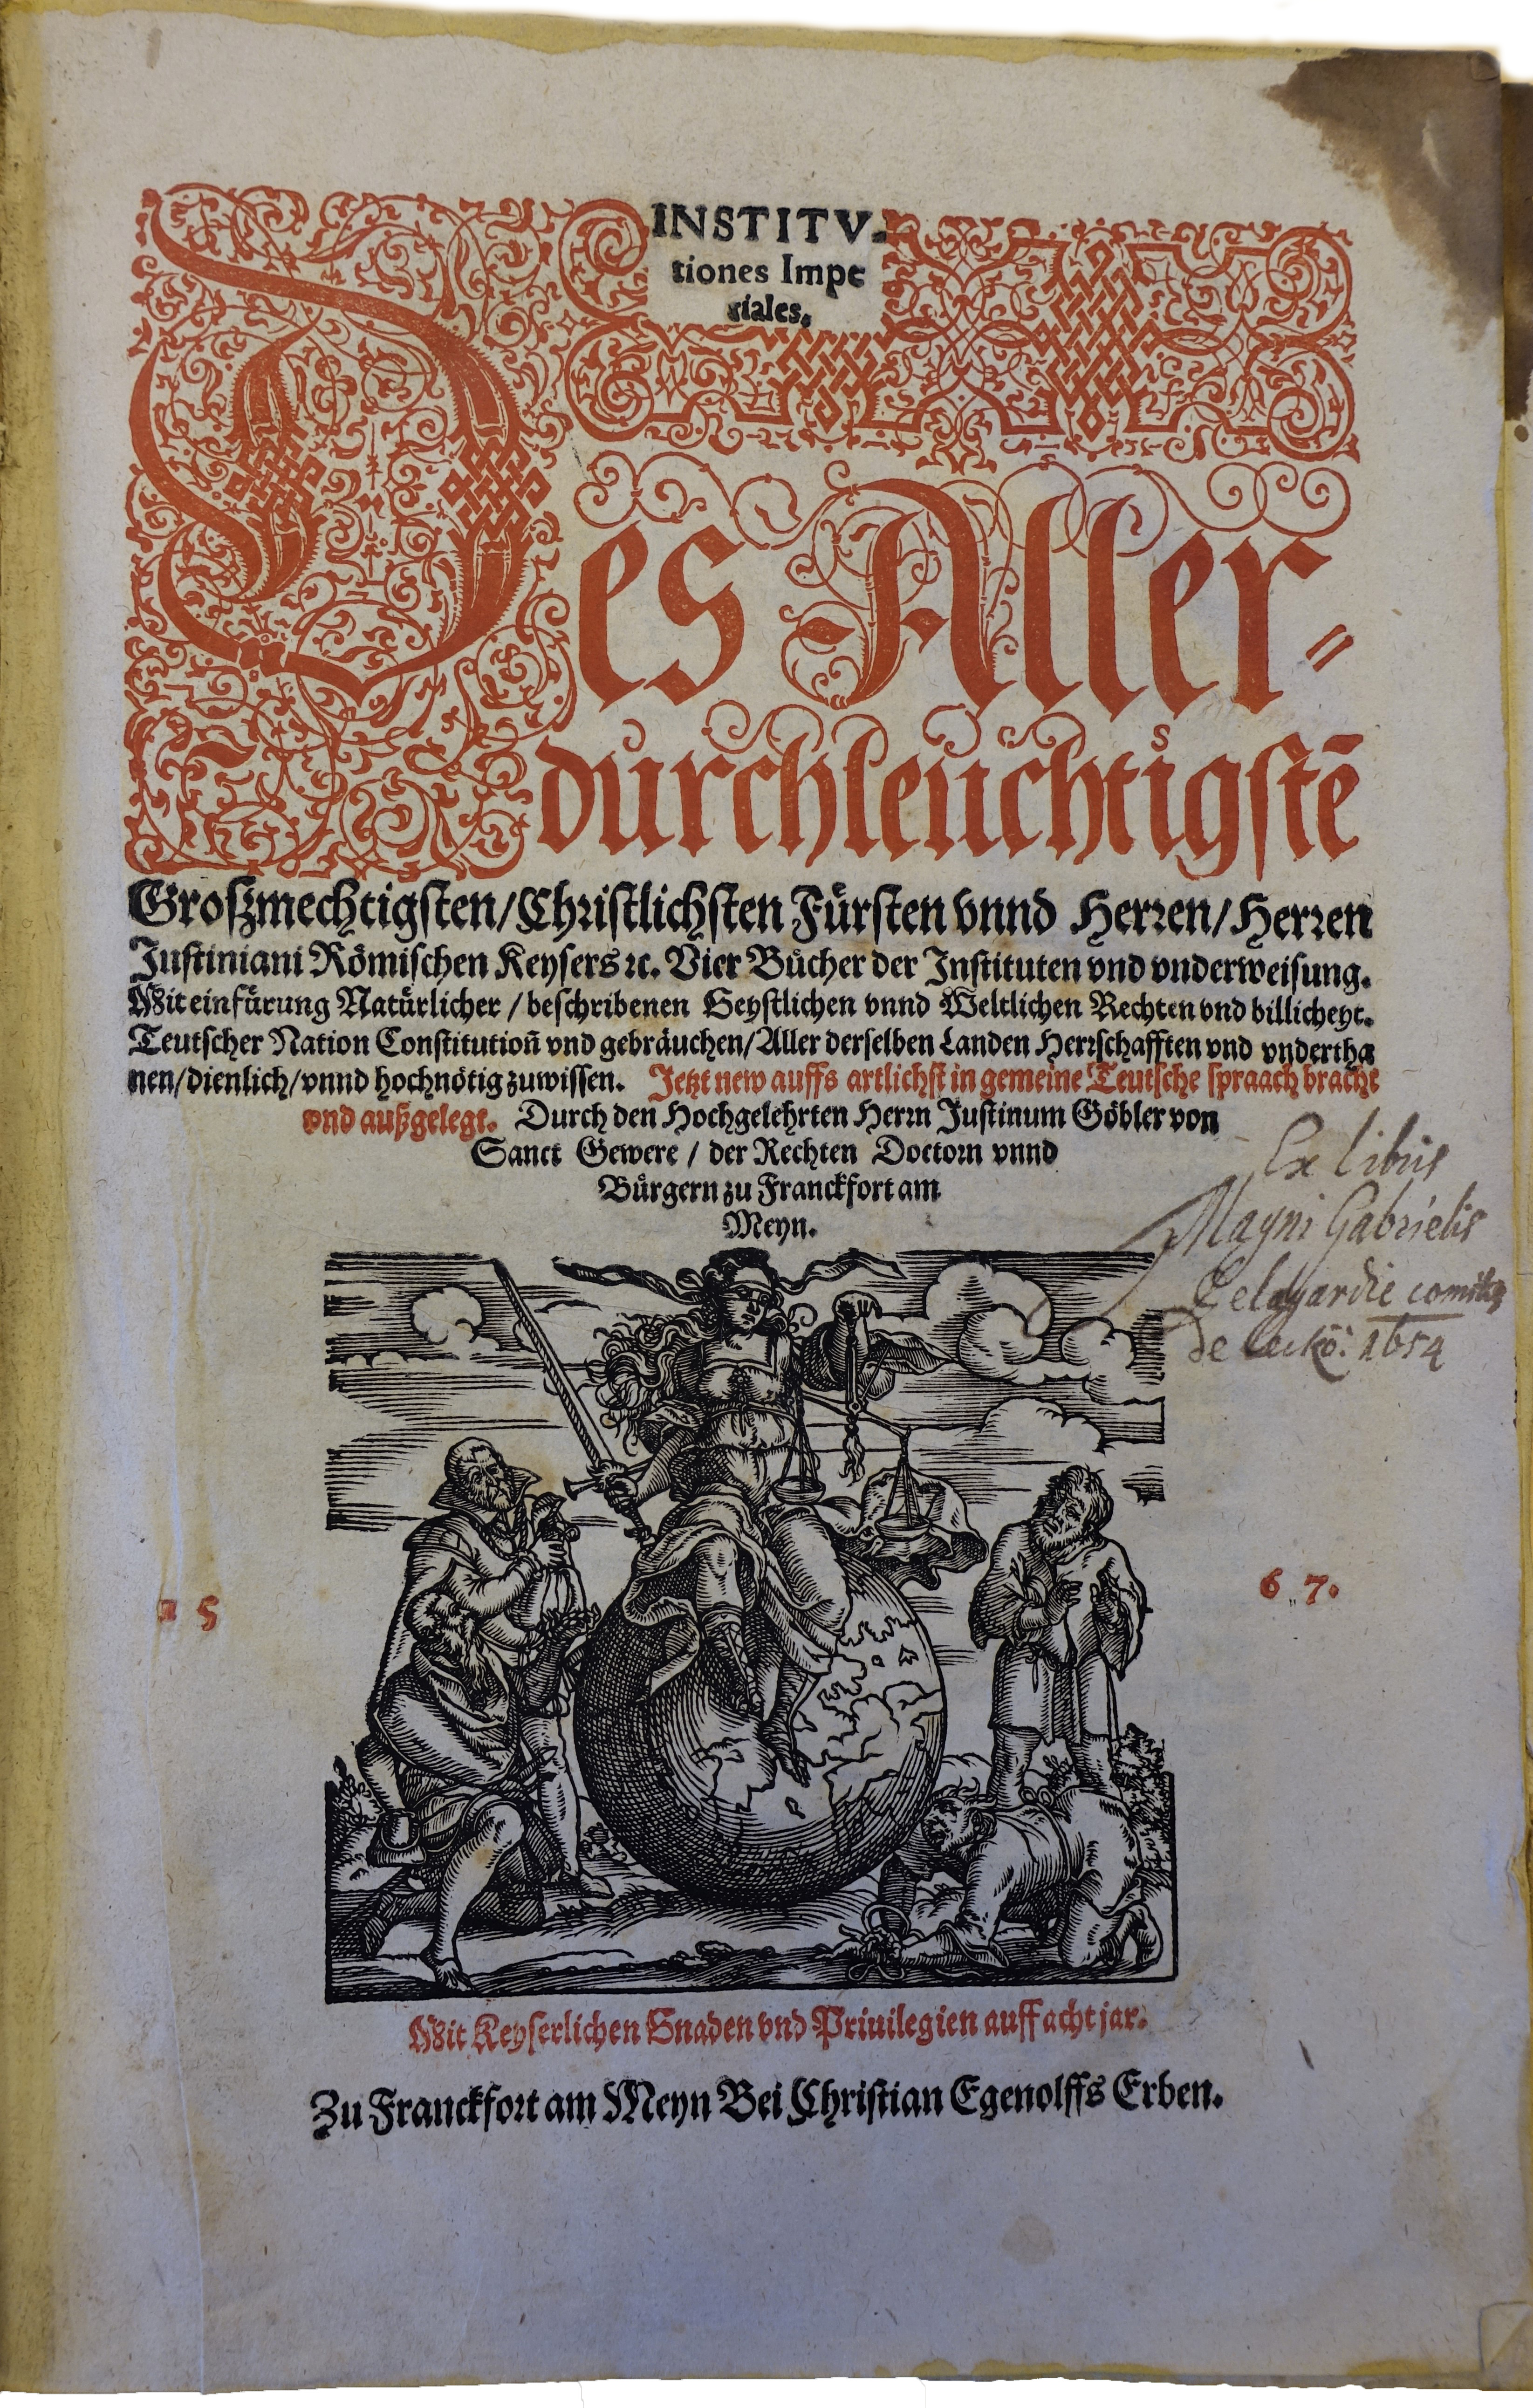 INSTITV-
tiones Impe
riales.
Des Aller-
durchleuchtigstē
Großmechtigsten/Christlichsten Fürsten vnnd Herren/Herren
Justiniani Römischen Keysers ꝛc. Vier Bücher der Instituten vnd vnderweisung.
Mit einfürung Natürlicher/beschribenen Geystlichen vnnd Weltlichen Rechten vnd billicheyt.
Teutscher Nation Constitutioñ vnd gebräuchen/Aller derselben Landen Herrschafften vnd vndertha
nen/dienlich/vnnd hochnötig zuwissen. Jetzt new auffs artlichst in gemeine Teutsche spraach bracht
vnd außgelegt. Durch den Hochgelehrten Herrn Justinum Göbler von
Sanct Gewere/der Rechten Doctorn vnnd
Bürgern zu Franckfort am
Meyn.
Ex libris
Magni Gabrielis
Delagardie comitis
de Leckö: 1654
5 6 7.
Mit Keyserlichen Gnaden vnd Priuilegien auff acht jar.
Zu Franckfort am Meyn Bei Christian Egenolffs Erben.